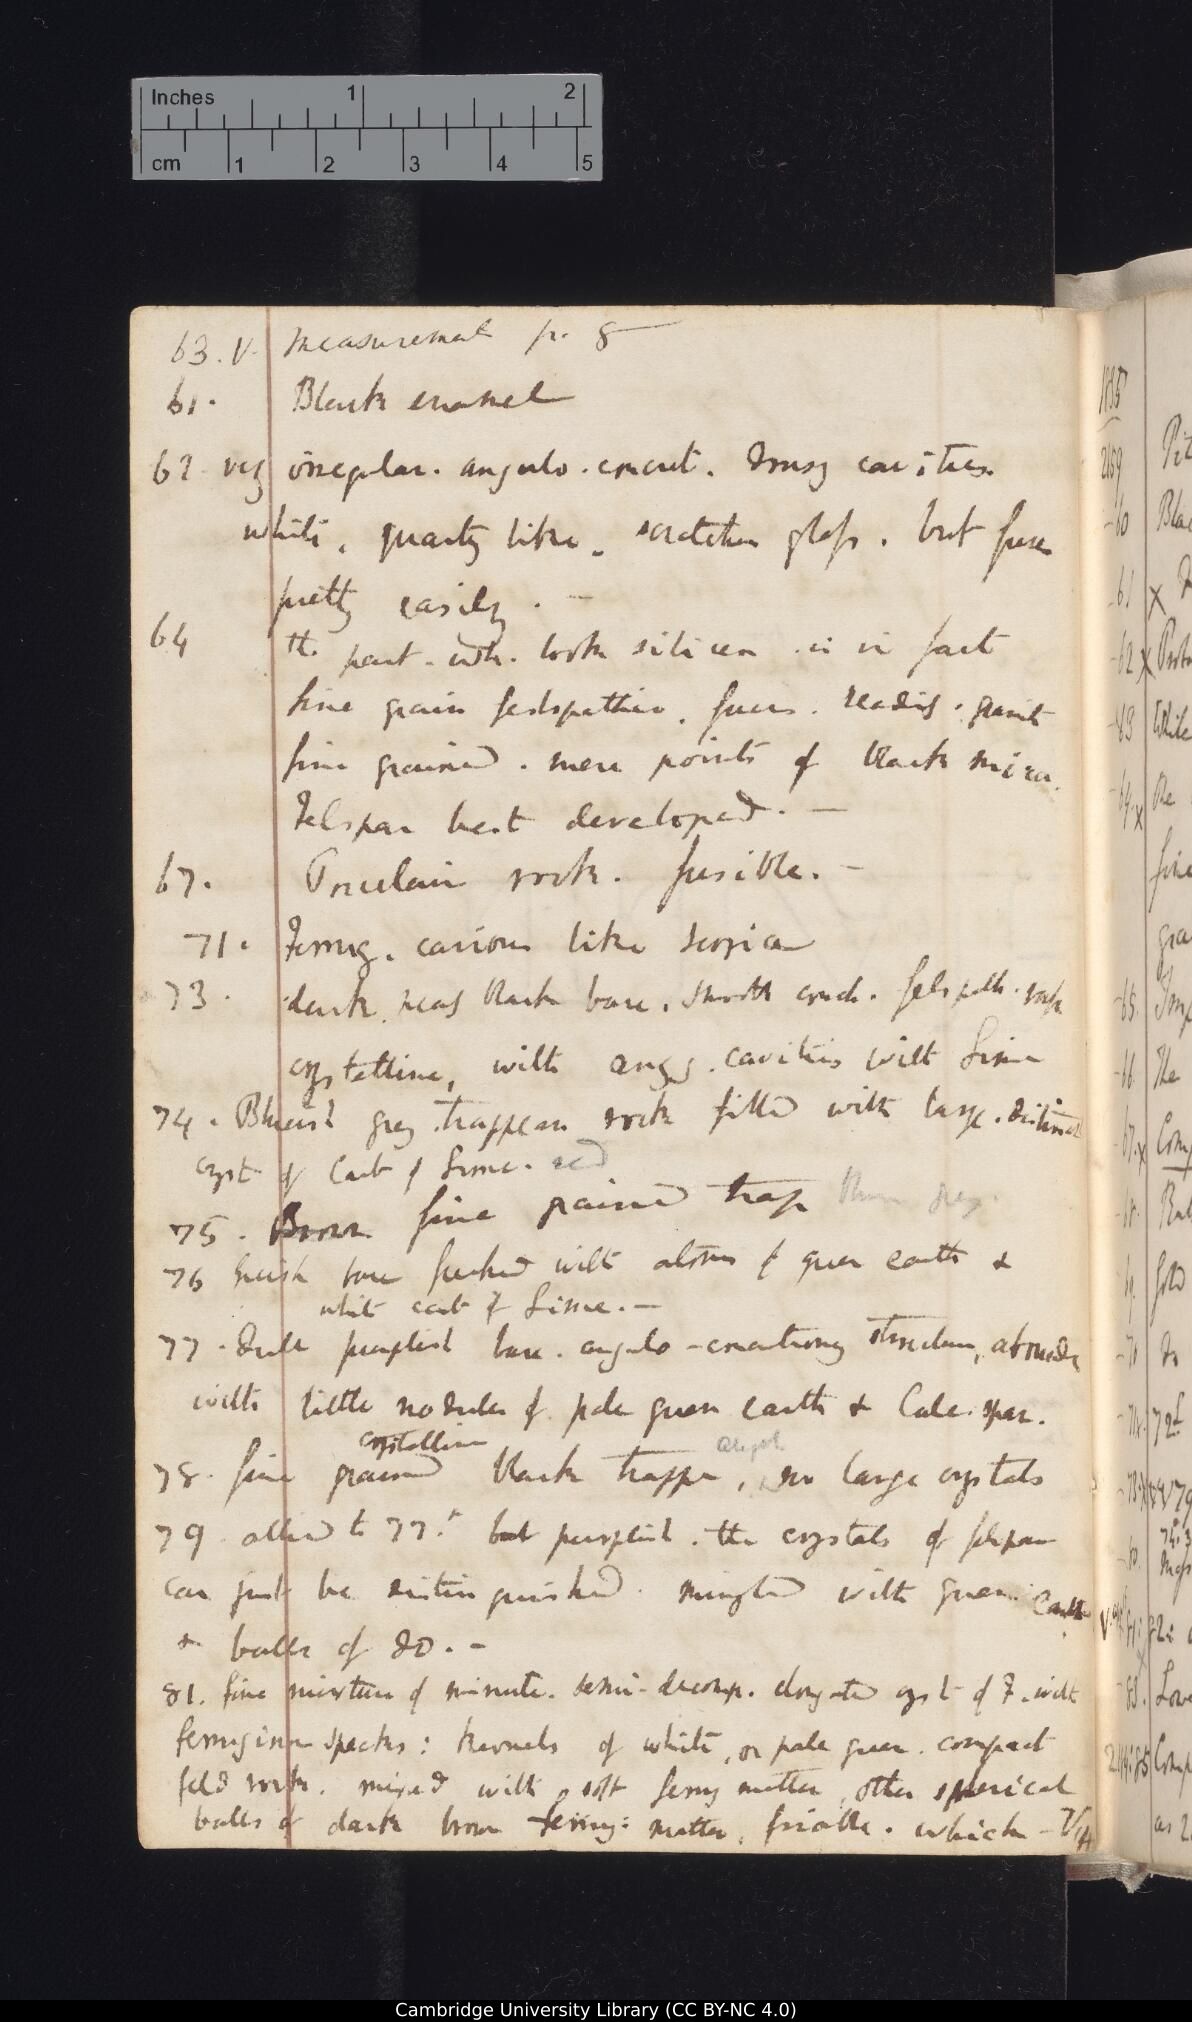 Inches 1 2
cm 1 2 3 4 5
63. V. Measurement p. 8
61. Black enamel
62 very irregular. angulo. concret. Drusy cavities.
white, quartz like. scratches glass. but fuses
pretty easily. —
64 the part. wh. look silicea is in fact
fine grain felspathic. fuses. reading. granite
fine grained. mere points of black mica.
Felspar best developed. —
67. Porcelain rock. fusible. —
71. Ferrug. carious like scoria
73. dark, near black base. smooth conch. felspath. rock
crystalline, with angg. cavities with Lime
74. Blueish grey trappean rock filled with large. distinct
cryst of Carb of Lime. red
75. Brown fine grained trap grey.
76 base with of green earth &
white carb of Lime. —
77. Dull purplish base. angulo-concretionary structure, abounds
with little nodules of pale green earth & Calc. spar.
crystalline
78. fine grained black trappe, no large crystals
79 allied to 77. but purplish. the crystals of felspar
can just be distinguished. mingled with green earth
& balls of do. —
81. fine mixture of minute. semi-decomp. elongated cryst of F. with
ferruginous specks: kernels of white, or pale green. compact
feld rock. mixed with soft ferrug matter, other spherical
balls of dark brown ferrug: matter, friable. which —
1835
2159
-60
-61 X
-62 X
-63
-64. X
-65.
-66. The
-67. X
72
79
Cambridge University Library (CC BY-NC 4.0)